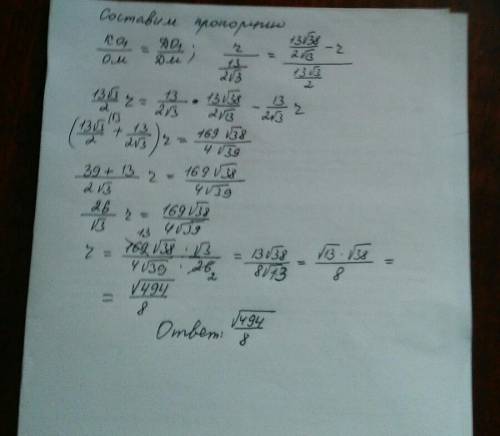 Составим пропорцию
KO₁/OM = DO₁/DM; r/(13/(2√3)) = (13√38/(2√13) - r)/(13√3/2)
13√3/2 r = 13/(2√3) • 13√38/(2√13) - 13/(2√3) r
(13√3/2 + 13/(2√3)) r = 169√38/(4√39)
(39 + 13)/(2√3) r = 169√38/(4√39)
26/√3 r = 169√38/(4√39)
r = (169√38 · √3)/(4√39 · 26) = 13√38/(8√13) = √13 · √38/8 =
= √494/8
Ответ: √494/8